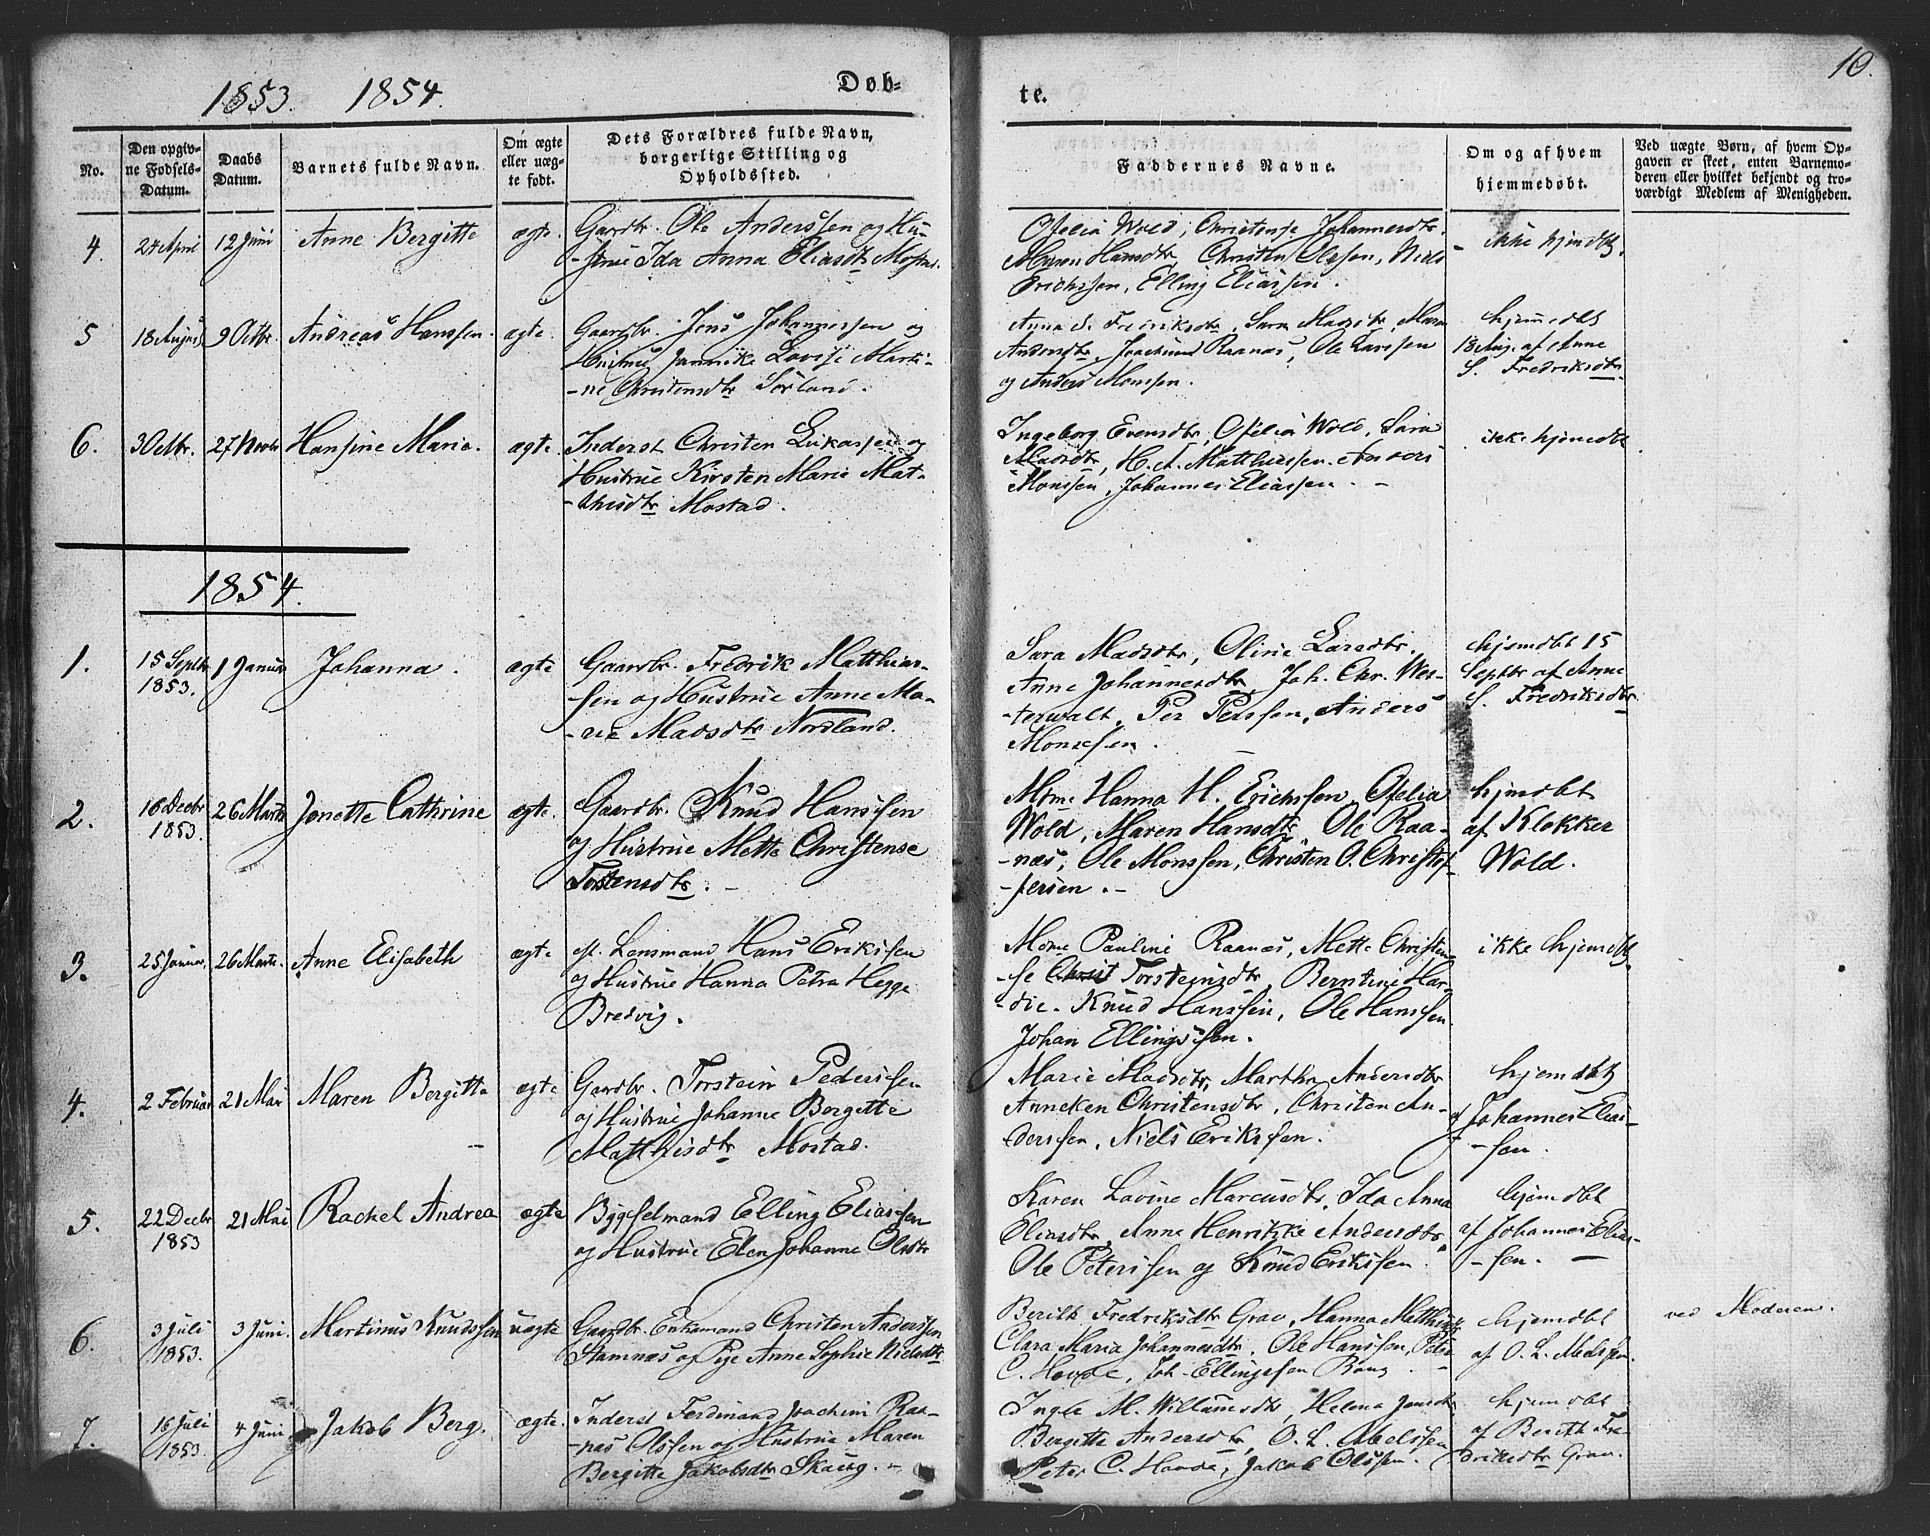 1853. 1854. Døb-
te. 10.
No.
Den opgiv-
ne Fødsels-
Datum.
Daabs
Datum.
Barnets fulde Navn.
Om ægte
eller uæg-
te født.
Dets Forældres fulde Navn,
borgerlige Stilling og
Opholdssted.
Faddernes Navne.
Om og af hvem
hjemmedøbt.
Ved uægte Børn, af hvem Op-
gaven er skeet, enten Barnemo-
deren eller hvilket bekjendt og tro-
værdigt Medlem af Menigheden.
4. 24 April 12 Juni Anne Bergitte ægte. Gardbr. Ole Anderssen og Hu-
-strue Ida Anna Eliasdtr
Ofelia Wold, Christense Johannesdtr.
Maren Hansdtr, Christen Olssen, Niels
Erichssen, Elling Eliassen.
ikke hjemdbt.
5 18 August 9 Octbr. Andreas Hanssen. ægte. Gaardbr. Jens Johannessen og
Hustrue Lovise Marti-
-ne Christensdtr Sörland.
Anna S. Fredriksdtr, Sara Madsdtr, Maren
Andersdtr, Joachim Raanæs, Ole Larssen
og Anders Monssen.
hjemdbt
18 Aug. af Anne
S. Fredriksdtr
6. 3 Octbr. 27 Novbr Hansine Marie. ægte. Inderst Christen Lukassen og
Hustrue Kirsten Marie Mat-
-thisdtr Mostad.
Ingeborg Evensdtr, Ofelia Wold, Sara
Madsdtr, H. A. Matthiessen. Anders
Monssen, Johannes Eliassen. -
ikke hjemdbt
1854.
1. 15 Septbr
1853. 1 Januar Johanna. ægte Gaardbr. Fredrik Matthias-
-sen og Hustrue Anne Ma-
-rie Madsdtr Nordland.
Sara Madsdtr, Oline Larsdtr,
Anne Johannesdtr, Joh. Chr. Wes-
-terwalt, Per Perssen, Anders
Monssen.
hjemdbt 15
Septbr af Anne
S. Fredriksdtr
2. 16 Decbr
1853. 26 Marts Jonette Cathrine ægte. Gaardbr. Knud Hanssen
og Hustrue Mette Christense
Torstensdtr. -
Mdme Hanna H. Erichssen, Ofelia
Wold, Maren Hansdtr, Ole Raa-
-næs, Ole Monssen, Christen O. Christof-
-fersen. -
hjemdbt
af Klokker
Wold.
3. 25 Januar. 26 Marts. Anne Elisabeth ægte. Lensmand Hans Erikssen
og Hustrue Hanna Petra Hegge
Bredvig.
Mdme Pauline Raanæs, Mette Christen-
-se Christ Torsteinsdtr, Berntine Har-
-die. Knud Hanssen, Ole Hanssen.
Johan Ellingssen.
ikke hjemdbt.
4. 2 Februar 21 Mai Maren Bergitte ægte Gardbr. Torstein Pederssen
og Hustrue Johanne Bergette
Matthisdtr Mostad.
Marie Madsdtr, Martha Andersdtr
Anneken Christensdtr, Christen An-
-derssen, Niels Erikssen.
hjemdbt
af Johannes Elias-
-sen.
5. 22 Decbr
1853 21 Mai Rachel Andrea ægte Bygselmand Elling Eliassen
og Hustrue Elen Johanne Olsdtr
Karen Lovine Marcusdtr, Ida Anna
Eliasdtr, Anne Henrikke Andersdtr,
Ole Peterssen og Knud Erikssen.
hjemdbt
af Johannes Elias-
-sen. -
6. 3 Juli
1853. 3 Juni. Martinus Knudssen uægte Gaardbr. Enkemand Christen Anderssen
Stamnæs og Pige Anne Sophie Nielsdtr
Berith Fredriksdtr Grav, Hanna Matthisdtr
Clara Maria Johannesdtr, Ole Hanssen, Peter
C. Hovde, Joh. Ellingssen
hjemdbt
af O. L.
ved Moderen.
7. 16 Juli
1853. 4 Juni Jakob Berg. ægte. Inderst Ferdinand Joachim Raa-
-næs Olssen og Hustrue Maren
Bergitte Jakobsdtr Skaug. -
M. Willumsdtr, Helena
Bergitte Andersdtr, O. L. Abelssen
Peter C. Hovde, Jakob Olssen.
hjemdbt
af Berith Fre-
-driksdtr Grav.